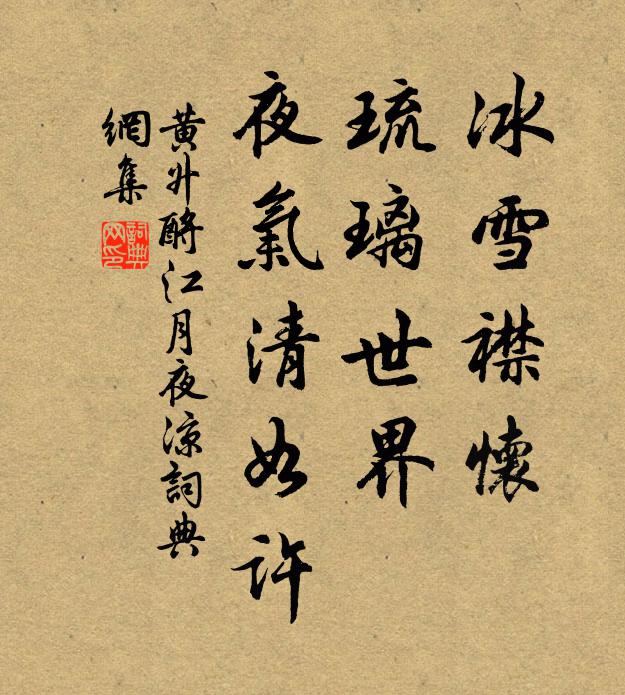 冰雪襟懷
琉璃世界
夜氣清如許
黃升酹江月夜涼詞典
網集
詞典网印